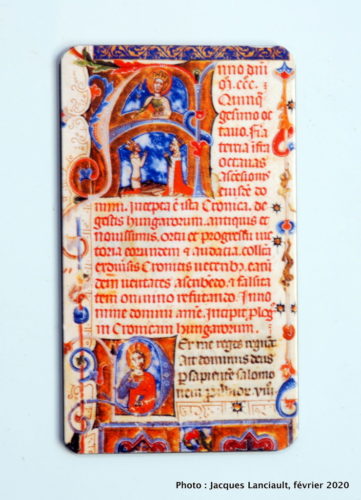 Anno dni
M. ccc.
Quinq
gesimo oc
tauo. Fia
tertia ifra
octauas
ascēsionis
eiusdē do
mini. Incepta ē ista Cronica. de
gestis hungarorum. antiquis et
nouissimis. ortu et progressu uic
toria eorundem & audacia. collcā
exdiuersis Cronicis ueteribz. earū
dem ueritates asscribēdo. & falsita
tem omnino refutando. In no
mine domini amē. Incipit plog
in Cronicam hungarorum.
Per me reges regnāt
ait dominus deus
p sapientē salomo
nem puerbior. viii.
Photo : Jacques Lanciault, février 2020